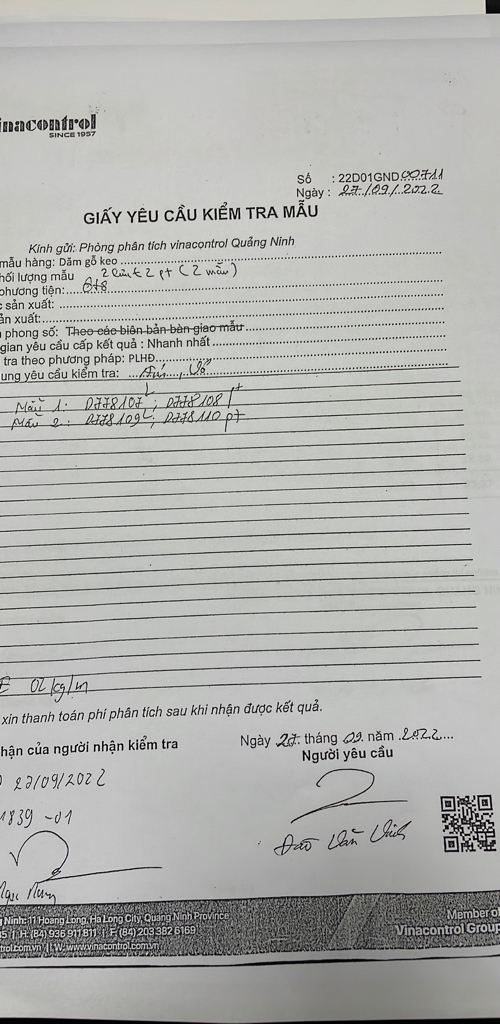 inacontrol
SINCE 1957
Số : 22D01GND.00711
Ngày : 27/09/2022
GIẤY YÊU CẦU KIỂM TRA MẪU
Kính gửi: Phòng phân tích vinacontrol Quảng Ninh
mẫu hàng: Dăm gỗ keo
hối lượng mẫu 2 lưu + 2 pt (2 mẫu)
phương tiện:
sản xuất:
ản xuất:
phong số: Theo các biên bản bàn giao mẫu
gian yêu cầu cấp kết quả : Nhanh nhất
tra theo phương pháp: PLHĐ
ung yêu cầu kiểm tra: Ẩm, Vỏ
Mẫu 1: D778107 L; D778108 pt
Mẫu 2: D778109 L; D778110 pt
02 kg/m
xin thanh toán phí phân tích sau khi nhận được kết quả.
hận của người nhận kiểm tra
Ngày 27 tháng 09 năm 2022
Người yêu cầu
27/09/2022
1839 -01
Đào Văn Vinh
Ninh: 11 Hoang Long, Ha Long City, Quang Ninh Province
5 | H: (84) 936 911 811 | F: (84) 203 382 6169
trol.com.vn | W: www.vinacontrol.com.vn
Member of
Vinacontrol Group